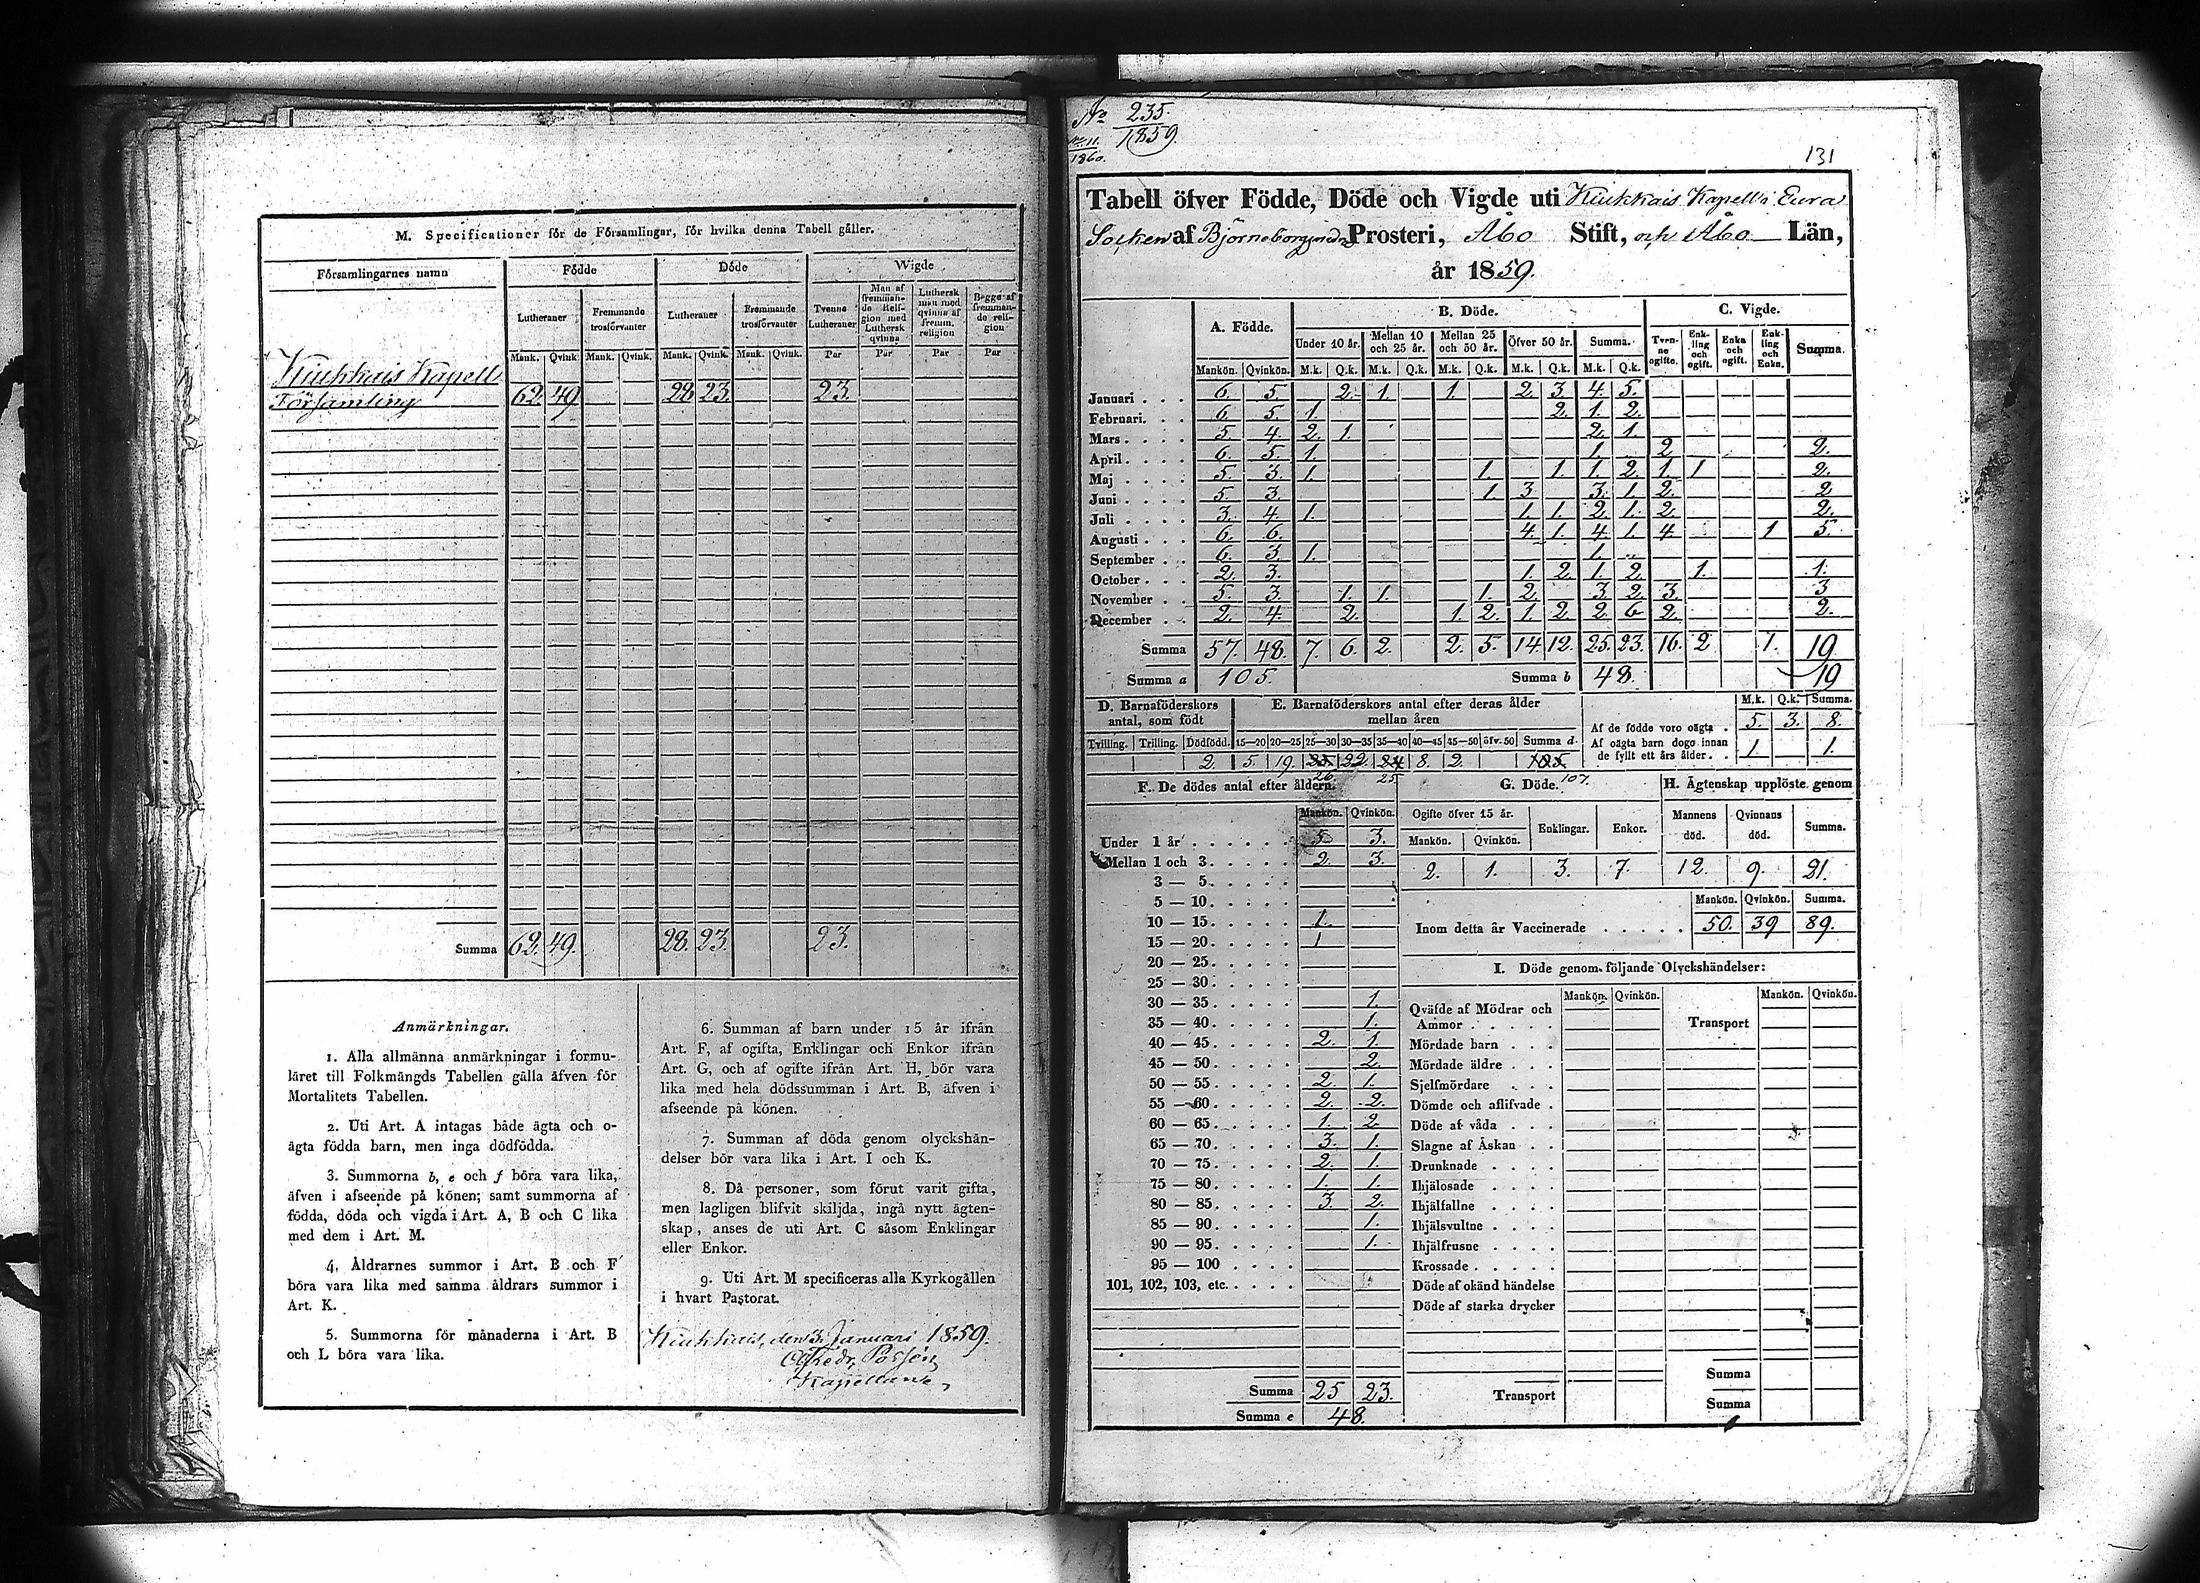 M. Specificationer för de Församlingar, för hvilka denna Tabell gäller.
Församlingarnes namn Födde Döde Wigde
Lutheraner Fremmande trosförvanter Lutheraner Fremmande trosförvanter Tvenne Lutheraner Man af fremmande Religion med Luthersk qvinna Luthersk man med qvinna af fremm. religion Begge af fremmande religion
Mank. Qvink Mank. Qvink. Mank. Qvink. Mank. Qvink. Par Par Par Par
Kiukkais Kapell
Församling 62. 49 28 23. 23.
Summa 62. 49. 28. 23. 23.
Anmärkningar.
1. Alla allmänna anmärkningar i formu-
läret till Folkmängds Tabellen gälla äfven för
Mortalitets Tabellen.
2. Uti Art. A intagas både ägta och o-
ägta födda barn, men inga dödfödda.
3. Summorna b, e och f böra vara lika,
äfven i afseende på könen; samt summorna af
födda, döda och vigda i Art. A, B och C lika
med dem i Art. M.
4. Åldrarnes summor i Art. B och F
böra vara lika med samma åldrars summor i
Art. K.
5. Summorna för månaderna i Art. B
och L böra vara lika.
6. Summan af barn under 15 år ifrån
Art. F, af ogifta, Enklingar och Enkor ifrån
Art. G, och af ogifte ifrån Art. H, bör vara
lika med hela dödssumman i Art. B, äfven i
afseende på könen.
7. Summan af döda genom olyckshän-
delser bör vara lika i Art. I och K.
8. Då personer, som förut varit gifta,
men lagligen blifvit skiljda, ingå nytt ägten-
skap, anses de uti Art. C såsom Enklingar
eller Enkor.
9. Uti Art. M specificeras alla Kyrkogällen
i hvart Pastorat.
Kiukkais, den 3. Januari 1859.
Kapellan
No 235.
1859.
No 11.
1860.
131
Tabell öfver Födde, Döde och Vigde uti Kiukkais Kapell i Eura
Socken af Björneborgs Prosteri, Åbo Stift, och Åbo Län,
år 1859.
A. Födde. B. Döde. C. Vigde.
Under 10 år. Mellan 10 och 25 år. Mellan 25 och 50 år. Öfver 50 år. Summa. Tvenne ogifte. Enkling och ogift. Enka och ogift. Enkling och Enka. Summa.
Mankön. Qvinkön. M.k. Q.k. M.k. Q.k. M.k. Q.k. M.k. Q.k. M.k. Q.k.
Januari . . . 6. 5. 2. 1. 1. 2. 3. 4. 5.
Februari. . . 6. 5. 1. 2. 1. 2.
Mars . . . . 5. 4. 2. 1. 2. 1.
April . . . . 6. 5. 1. 1. 2 2.
Maj . . . . 5. 3. 1. 1. 1. 1. 2. 1. 1 2.
Juni . . . . 5. 3. 1. 3 3. 1. 2. 2
Juli . . . . 3. 4. 1. 1. 1. 2. 1. 2. 2.
Augusti . . . 6. 6. 4. 1. 4. 1. 4. 1 5.
September . . 6. 3. 1. 1.
October . . . 2. 3. 1. 2. 1. 2. 1. 1.
November . . 5. 3. 1. 1. 1. 2. 3. 2. 3. 3
December . . 2. 4. 2. 1. 2. 1. 2. 2. 6 2. 2.
Summa 57. 48. 7. 6. 2. 2. 5. 14. 12. 25. 23. 16. 2 1. 19
Summa a 105. Summa b 48. 19
D. Barnaföderskors antal, som födt
E. Barnaföderskors antal efter deras ålder mellan åren
M.k. Q.k. Summa.
Af de födde voro oägta . 5. 3. 8.
Af oägta barn dogo innan
de fyllt ett års ålder. . 1. 1.
Tvilling. Trilling. Dödfödd. 15—20 20—25 25—30 30—35 35—40 40—45 45—50 öfv. 50 Summa d.
2. 5. 19. 25. 22. 24 8. 2. 105.
26. 25 107.
F. De dödes antal efter åldern. G. Döde. H. Ägtenskap upplöste genom
Mankön. Qvinkön. Ogifte öfver 15 år. Enklingar. Enkor. Mannens död. Qvinnans död. Summa.
Mankön. Qvinkön.
2. 1. 3. 7. 12. 9. 21.
Mankön. Qvinkön. Summa.
Inom detta år Vaccinerade . . . . . 50. 39 89.
Under 1 år . . . . . . 5 3.
Mellan 1 och 3. . . . . 2. 3.
3 — 5. . . . .
5 — 10. . . . .
10 — 15. . . . . 1.
15 — 20. . . . . 1
20 — 25. . . . .
25 — 30. . . . .
30 — 35. . . . . 1.
35 — 40. . . . . 1.
40 — 45. . . . . 2. 1.
45 — 50. . . . . 2.
50 — 55. . . . . 2. 1.
55 — 60. . . . . 2. 2.
60 — 65. . . . . 1. 2.
65 — 70. . . . . 3. 1.
70 — 75. . . . . 2. 1.
75 — 80. . . . . 1. 1.
80 — 85. . . . . 3. 2.
85 — 90. . . . . 1.
90 — 95. . . . . 1.
95 — 100 . . . .
101, 102, 103, etc. . . . .
Summa 25 23.
Summa e 48.
I. Döde genom följande Olyckshändelser:
Mankön. Qvinkön. Mankön. Qvinkön.
Qväfde af Mödrar och
Ammor . . . . . Transport
Mördade barn . . .
Mördade äldre . . .
Sjelfmördare . . .
Dömde och aflifvade .
Döde af våda . . .
Slagne af Åskan . .
Drunknade . . . .
Ihjälosade . . . .
Ihjälfallne . . . .
Ihjälsvultne . . . .
Ihjälfrusne . . . .
Krossade . . . . .
Döde af okänd händelse
Döde af starka drycker
Summa
Transport Summa